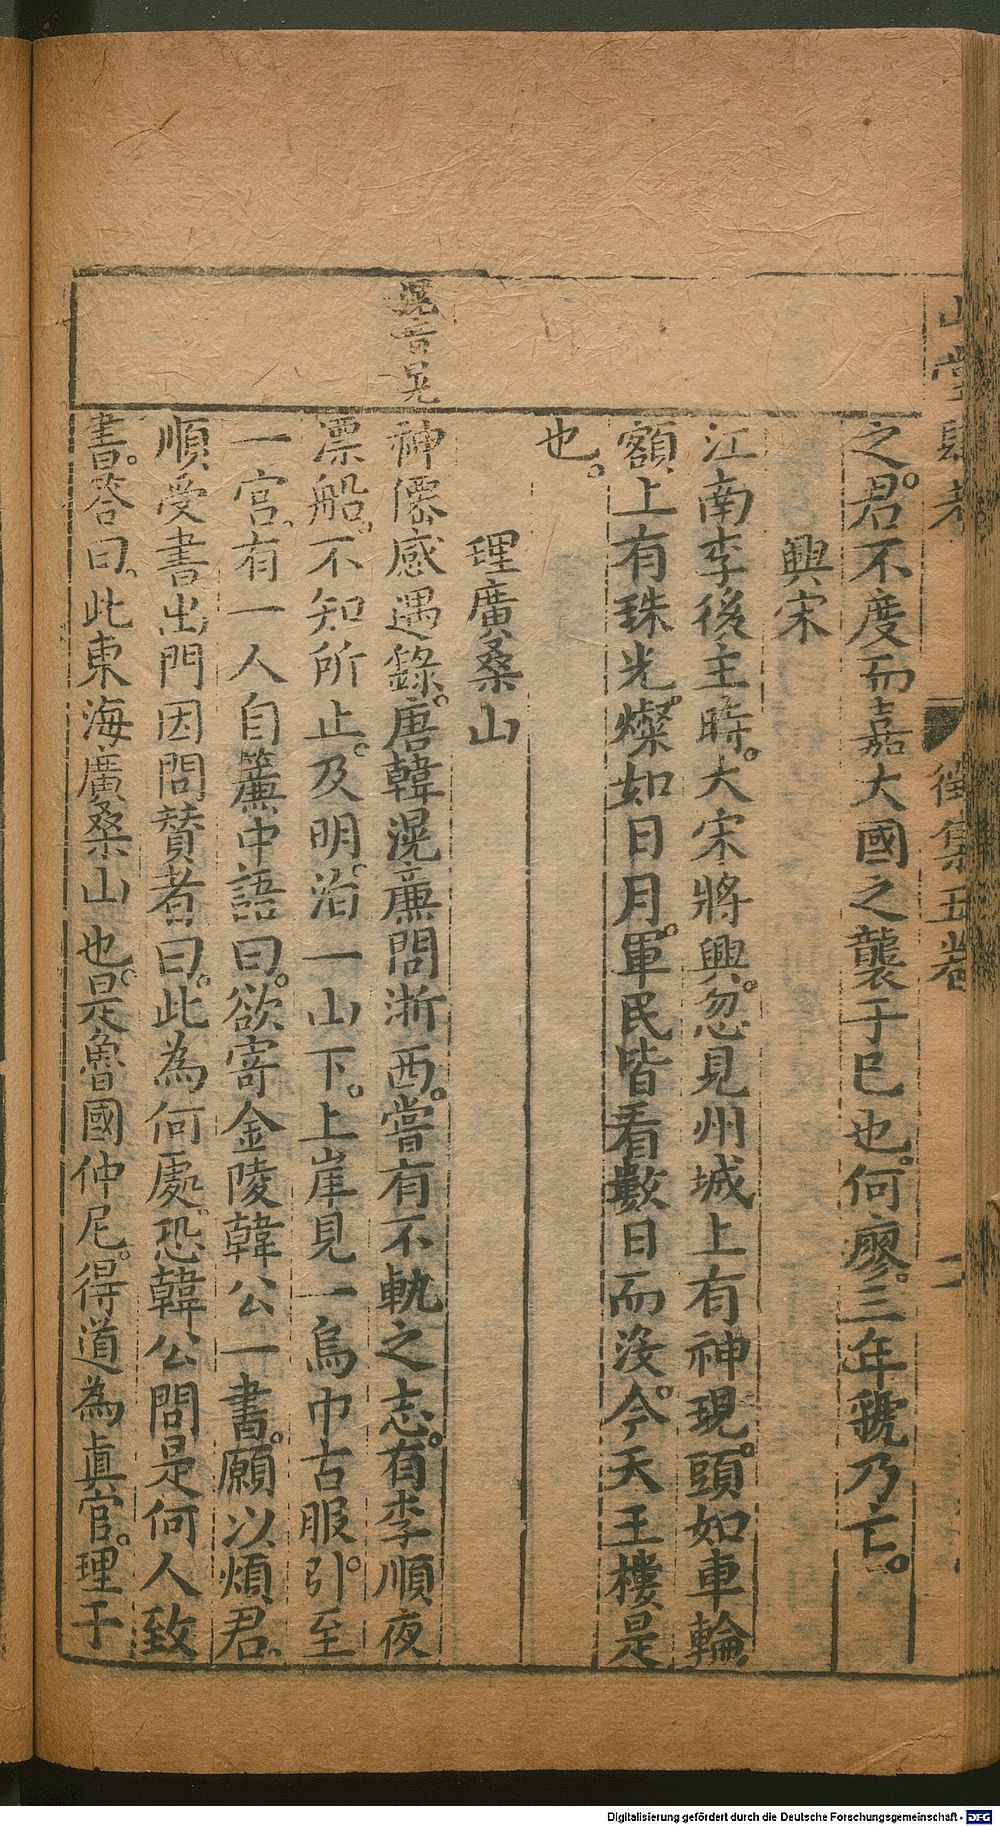 山堂肆考 徵集五卷
之君不度而嘉大國之襲于巳也何廖三年虢乃亡。
興宋
江南李後主時。大宋將興。忽見州城上有神現。頭如車輪
額上有珠光燦如日月。軍民皆看數日而沒。今天王樓是
也。
理廣桑山
滉音晃
神僊感遇錄。唐韓滉廉問浙西。嘗有不軌之志。有李順夜
漂船。不知所止。及明泊一山下。上岸見一烏巾古服。引至
一宮。有一人自簾中語曰。欲寄金陵韓公一書。願以煩君。
順受書出門因問贊者曰。此為何處。恐韓公問是何人致
書。答曰。此東海廣桑山也。是魯國仲尼。得道為真官。理于
Digitalisierung gefördert durch die Deutsche Forschungsgemeinschaft - DFG